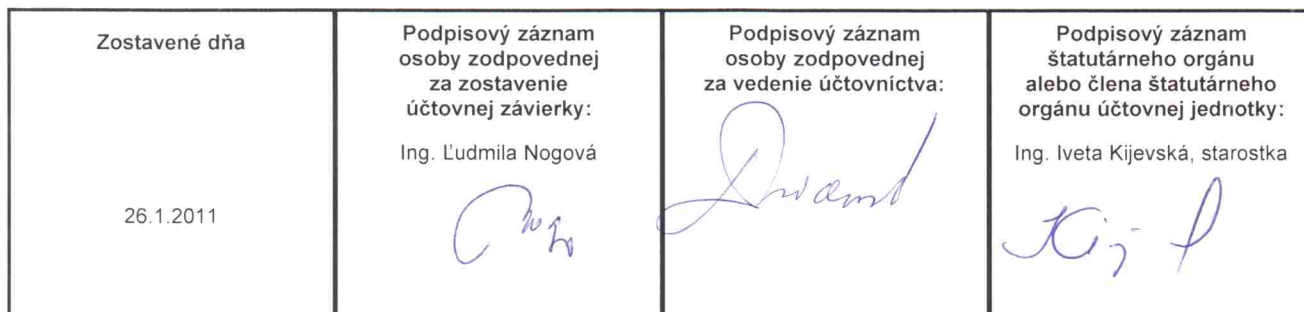 Zostavené dňa
26.1.2011
Podpisový záznam
osoby zodpovednej
za zostavenie
účtovnej závierky:
Ing. Ľudmila Nogová
Podpisový záznam
osoby zodpovednej
za vedenie účtovníctva:
Podpisový záznam
štatutárneho orgánu
alebo člena štatutárneho
orgánu účtovnej jednotky:
Ing. Iveta Kijevská, starostka